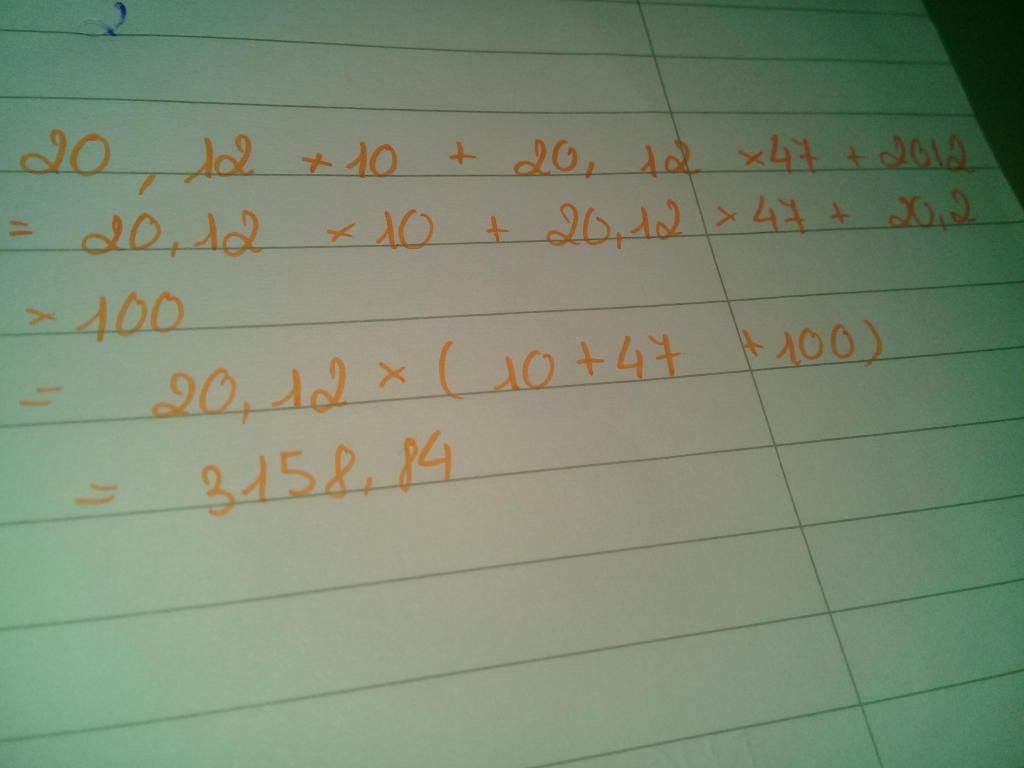 20,12 × 10 + 20,12 × 47 + 2012
= 20,12 × 10 + 20,12 × 47 + 20,2
× 100
= 20,12 × (10 + 47 + 100)
= 3158,84